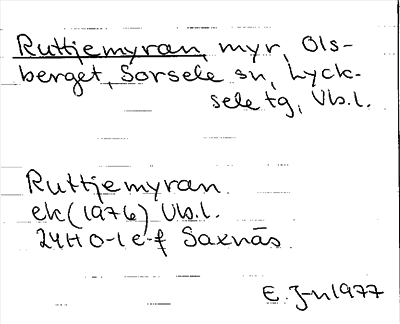 Ruttjemyran, myr, Ols-
berget, Sorsele sn, Lyck-
sele tg, Vb.l.
Ruttjemyran.
ek (1976) Vb.l.
24H 0-1 e-f Saxnäs.
E. J-n 1977